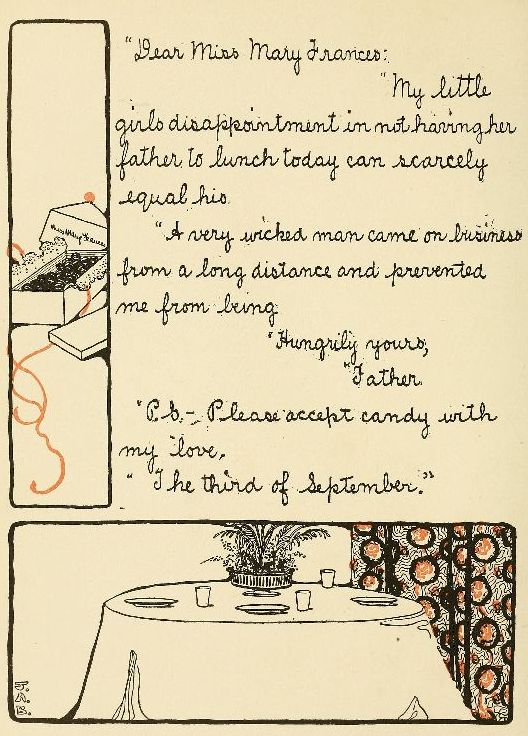 "Dear Miss Mary Frances:
"My little
girls disappointment in not having her
father to lunch today can scarcely
equal his.
"A very wicked man came on business
from a long distance and prevented
me from being
"Hungrily yours,
"Father.
"P.S.- Please accept candy with
my love,
"The third of September."
Miss Mary Frances
J.
A.
B.